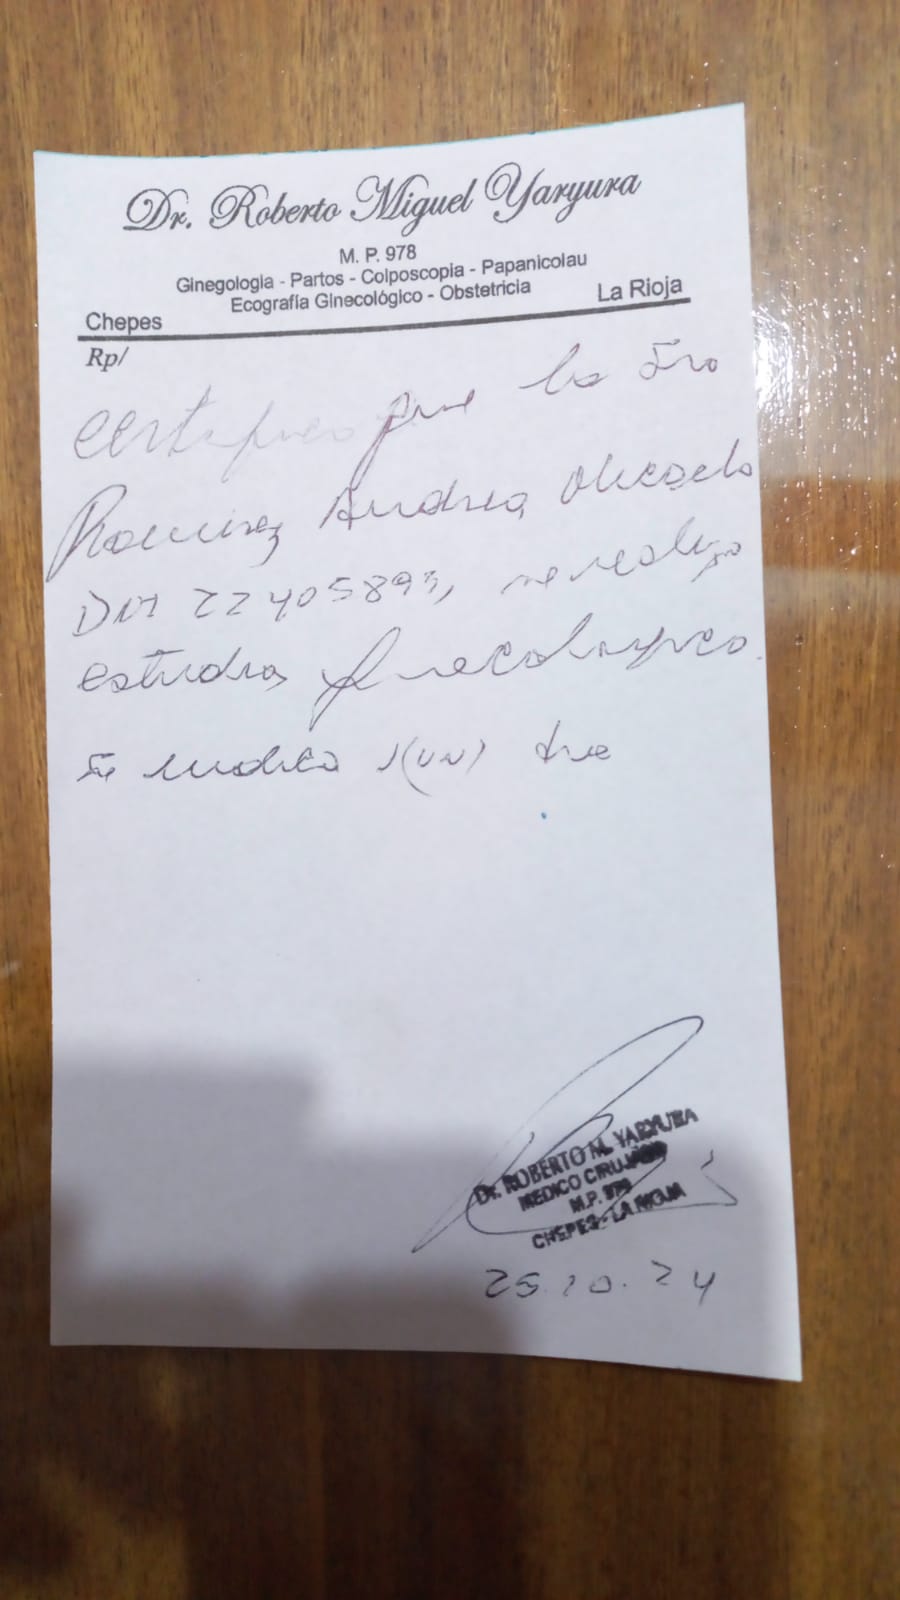 Dr. Roberto Miguel Yaryura
M. P. 978
Ginegologia - Partos - Colposcopia - Papanicolau
Ecografía Ginecológico - Obstetricia
Chepes La Rioja
Rp/
Certifico que la Sra
Ramirez Andrea Micaela
DNI 22405893, se realizo
estudios ginecologico.
Se indica 1(un) dia
Dr. ROBERTO M. YARYURA
MEDICO CIRUJANO
M.P. 978
CHEPES - LA RIOJA
25.10.24